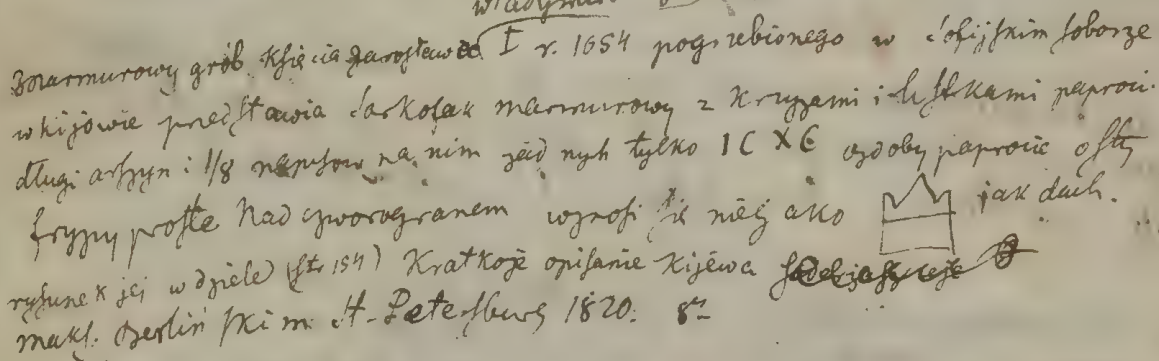 Marmurowy grób Księcia Jarosława I r. 1654 pogrzebionego w Sofijskim soborze
w kijowie przedstawia sarkofak marmurowy z Kryzami i listkami paproci.
długi arszyn i 1/8 napisow na nim zadnych tylko IC XC ozdoby paprocie osty
fryzy proste Nad czworogranem wznosi się niejako jak dach.
rysunek jej w dziele (str 154) Kratkoje opisanie Kijewa
maks. Berlińskim. St. Petersburg 1820. 8º